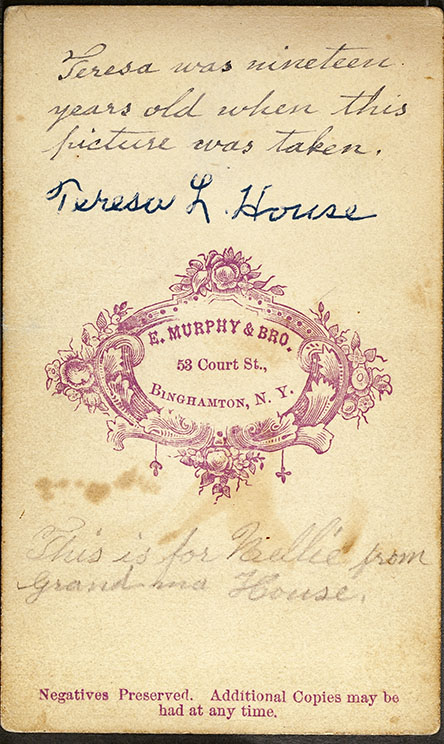 Teresa was nineteen
years old when this
picture was taken.
Teresa L. House
E. MURPHY & BRO.
53 Court St.,
BINGHAMTON, N. Y.
This is for Nellie from
Grand ma House.
Negatives Preserved. Additional Copies may be
had at any time.